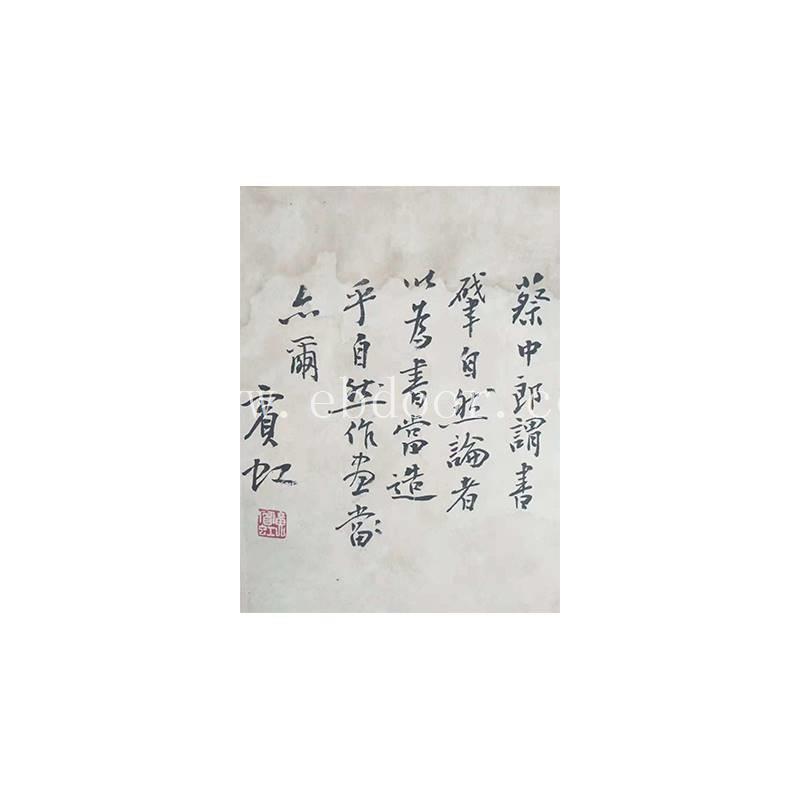 蔡中郎謂書
肇自然論者
以為書當造
乎自然作畫當
亦爾
賓虹
www.ebdoor.co